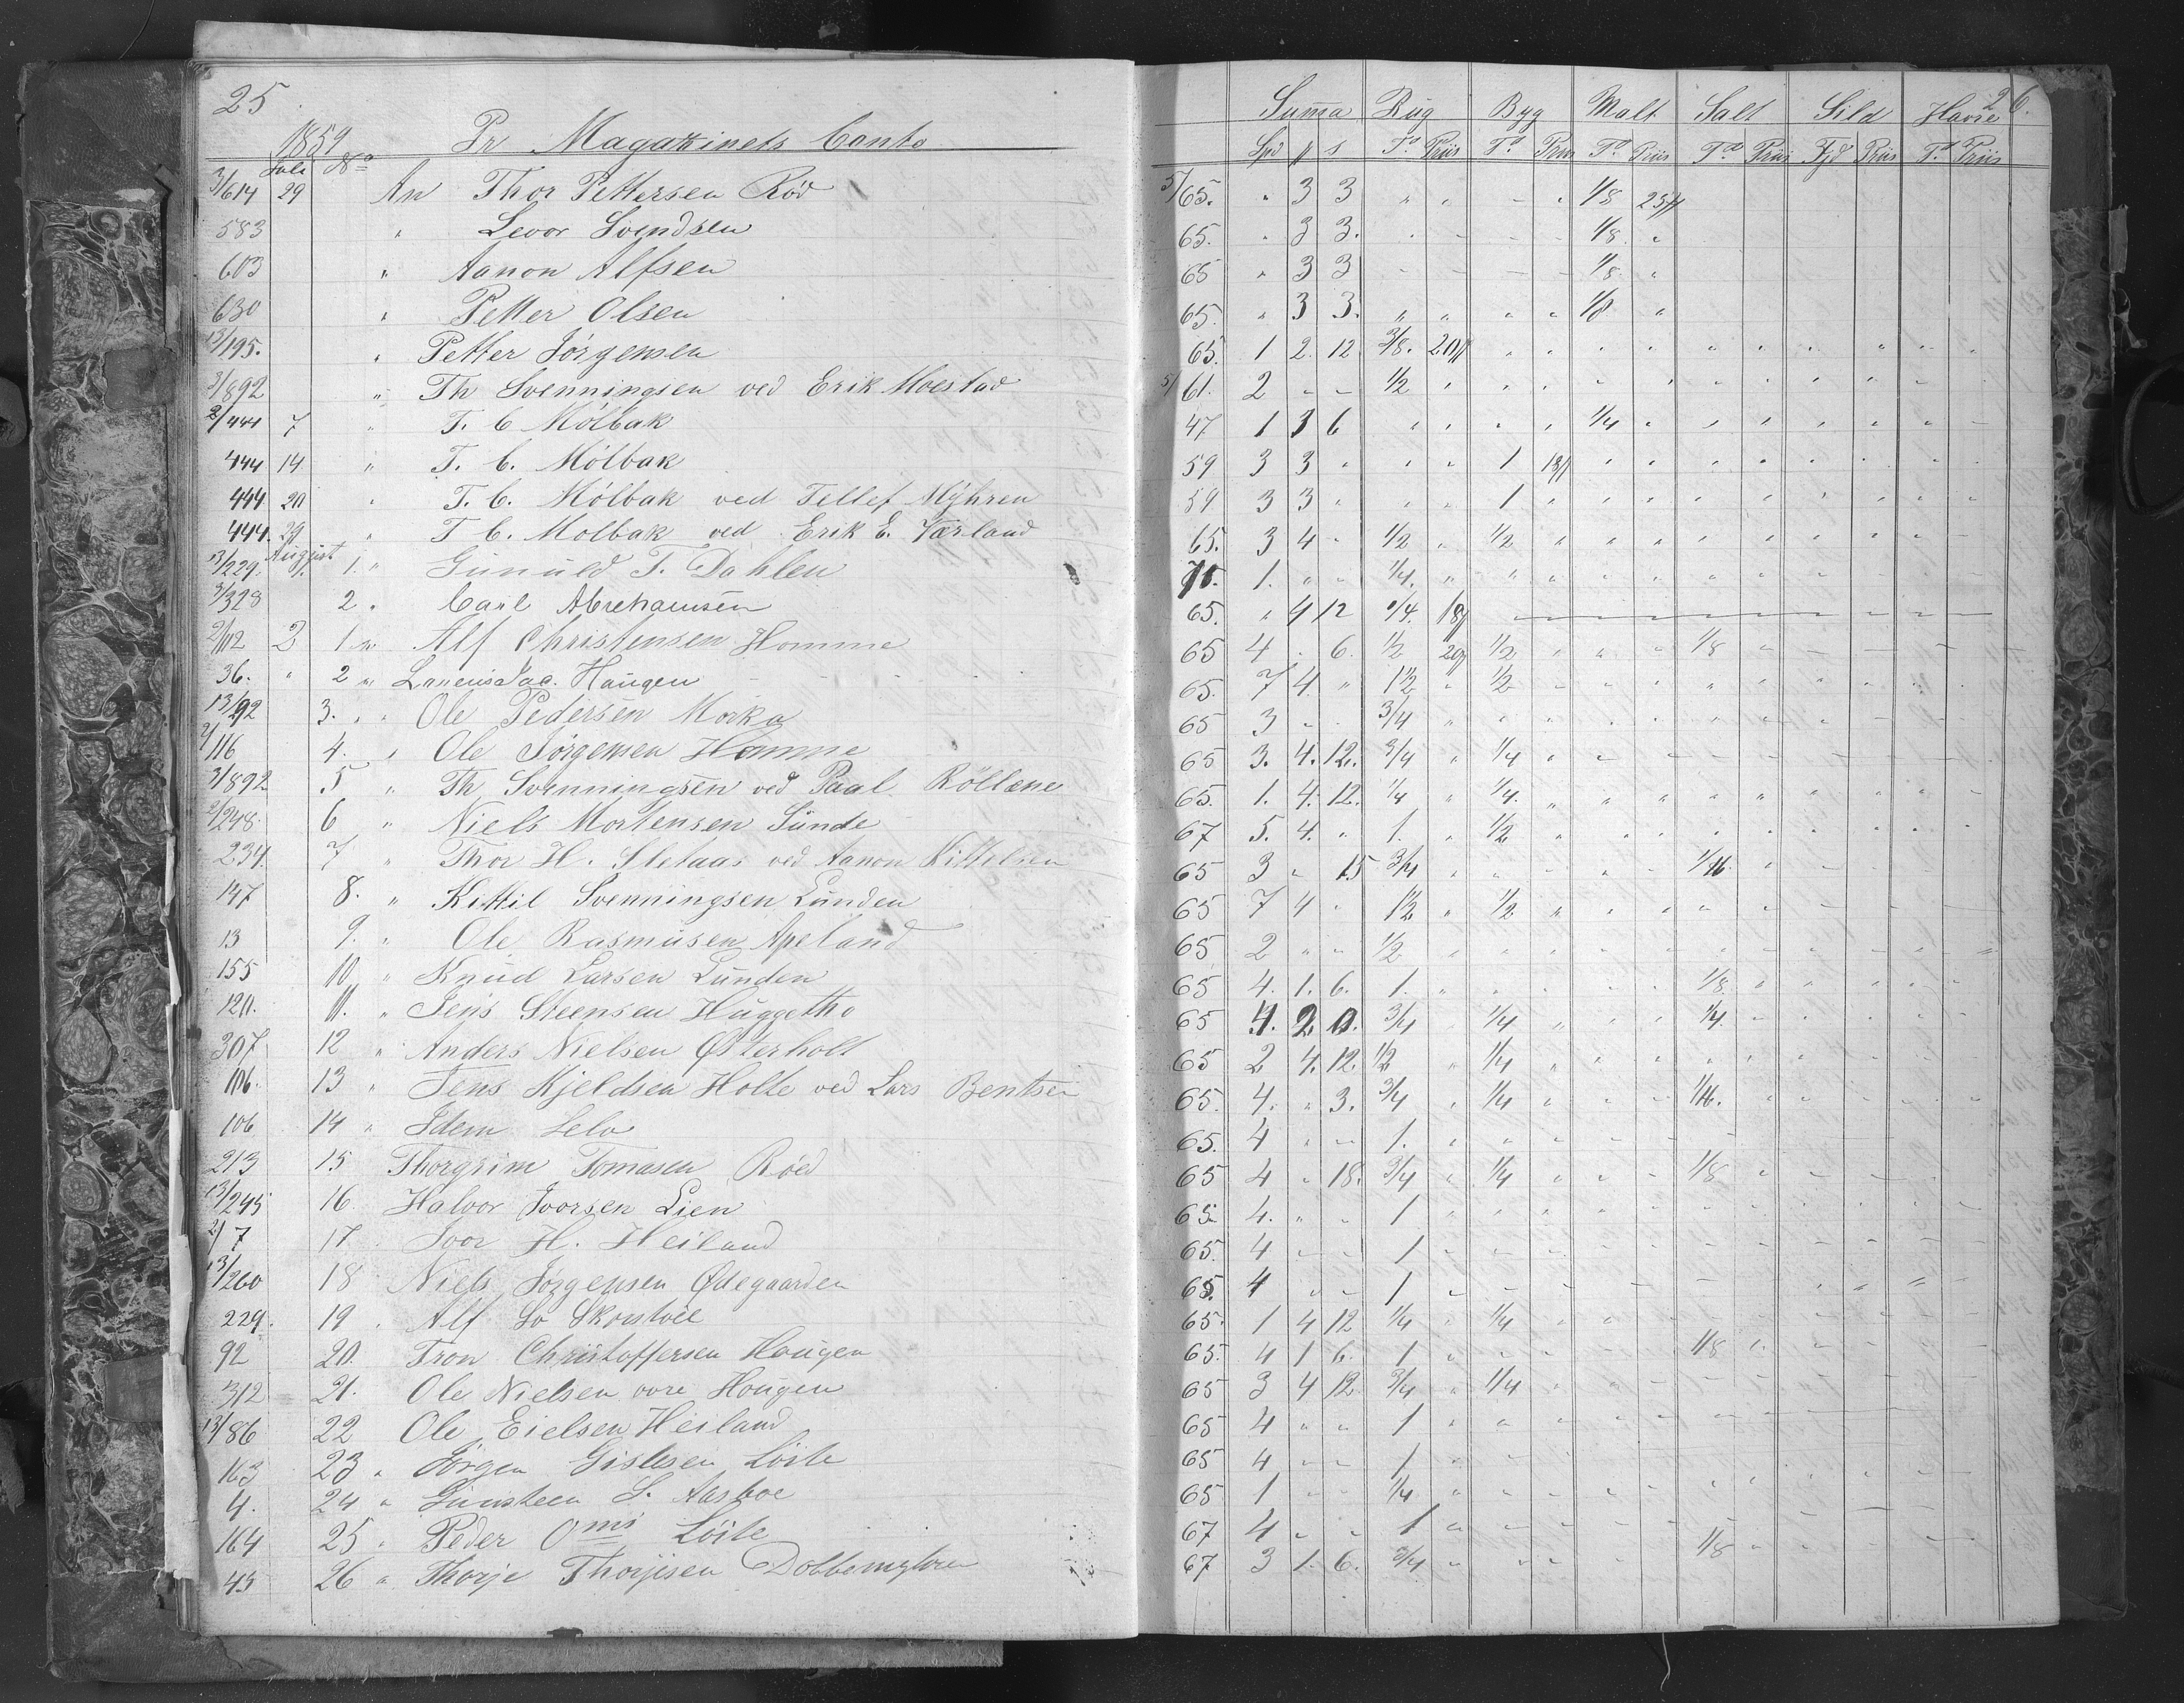 25
1859 Pr Magazinets Conto
Juli No
3/614 29 An Thor Pettersen Röd
583 " Levor Svendsen
603 " Aanon Alfsen
630 " Petter Olsen
13/195. " Petter Jörgensen
3/892 " Th Svenningsen ved Erik Moestad
2/444 7 " T. C Mölbak
444 14 " T. C. Mölbak
444 20 " T. C. Mölbak ved Tellef Myhren
444. 29 " T C. Molbak ved Erik E. Værland
August
13/229. 1. " Gunuld T. Dahlen
3/328 2 " Carl Abrehamsen
2/112 2 1 " Alf Christensen Homme
36. " 2 " Laueris Jac. Haugen
13/92 3. " " Ole Pedersen Morka
2/116 4. " Ole Jörgensen Homme
3/892 5 " Th Svenningsen ved Paal Röllene
2/248. 6 " Niels Mortensen Sünde
234. 7 " Thor H. Sletaas ved Aanon Kittelsen
147 8. " Kittil Svenningsen Lunden
13 9. " Ole Rasmusen Apeland
155 10 " Knud Larsen Lunden
120. 11. " Jens Steensen Huggetho
307 12 " Anders Nielsen Østerholt
106. 13 " Jens Kjeldsen Holte ved Lars Bentsen
106 14 " Idem Selv
213 15 Thorgrim Tomasen Röed
13/245 16 Halvor Ivorsen Lien
2/7 17 Ivor H. Heiland
13/260 18 Niels Jörgensen Ødegaarden
229. 19 . Alf So Skorstöll
92 20. Tron Christoffersen Haugen
312 21. Ole Nielsen ovre Haugen
13/86 22 Ole Eielsen Heiland
163 23 " Jörgen Gislesen Löite
4. 24 " Gunsteen S. Aasboe
164 25 " Peder Oms Löite
45 26 " Thorje Thorjisen
26.
Suma Rug Byg Malt Salt Sild Havre
Spd # s Td Priis Td Priis Td Priis Td Priis Fjd Priis Td Priis
5/65. " 3 3 " " - " 1/8 25#
65. " 3 3. " - - - 1/8. "
65 " 3 3 - - - - 1/8. "
65. " 3 3. " " " " 1/8 "
65. 1 2. 12 3/8. 20#
5/61. 2 - - 1/2
47 1 3 6 " " " " 1/4 "
59 3 3 " " " 1 18#
59 3 3 " " " 1
65. 3 4 " 1/2 " 1/2
75. 1. " " 1/4.
65. " 4 12 1/4. 18#
65 4 . 6. 1/2 20# 1/2 " " " 1/8
65. 7 4. " 1 1/2 " 1/2
65 3 - - 3/4
65 3. 4. 12. 3/4 " 1/4
65. 1. 4. 12. 1/4 " 1/4.
67 5. 4. " 1. " 1/2
65 3 " 15 3/4 " " " " " 1/16.
65 7 4 " 1 1/2 " 1/2
65 2 " " 1/2
65 4. 1. 6. 1. " " " " " 1/8.
65 4. 2. 0. 3/4 " 1/4 " " " 1/4.
65 2 4. 12. 1/2 " 1/4
65. 4. " 3. 3/4 " 1/4 " " " 1/16.
65. 4 " - 1.
65 4 " 18. 3/4 " 1/4 " " " 1/8
65. 4. " " 1
65. 4 - - 1
65. 4 " - 1
65. 1 4 12 1/4 " 1/4
65. 4 1 6. 1 " " " " " 1/8
65 3 4 12. 3/4 " 1/4
65 4 " " 1
65 4 - - 1
65 1 - - 1/4
67 4 " " 1
67 3 1. 6. 3/4 " " " " " 1/8